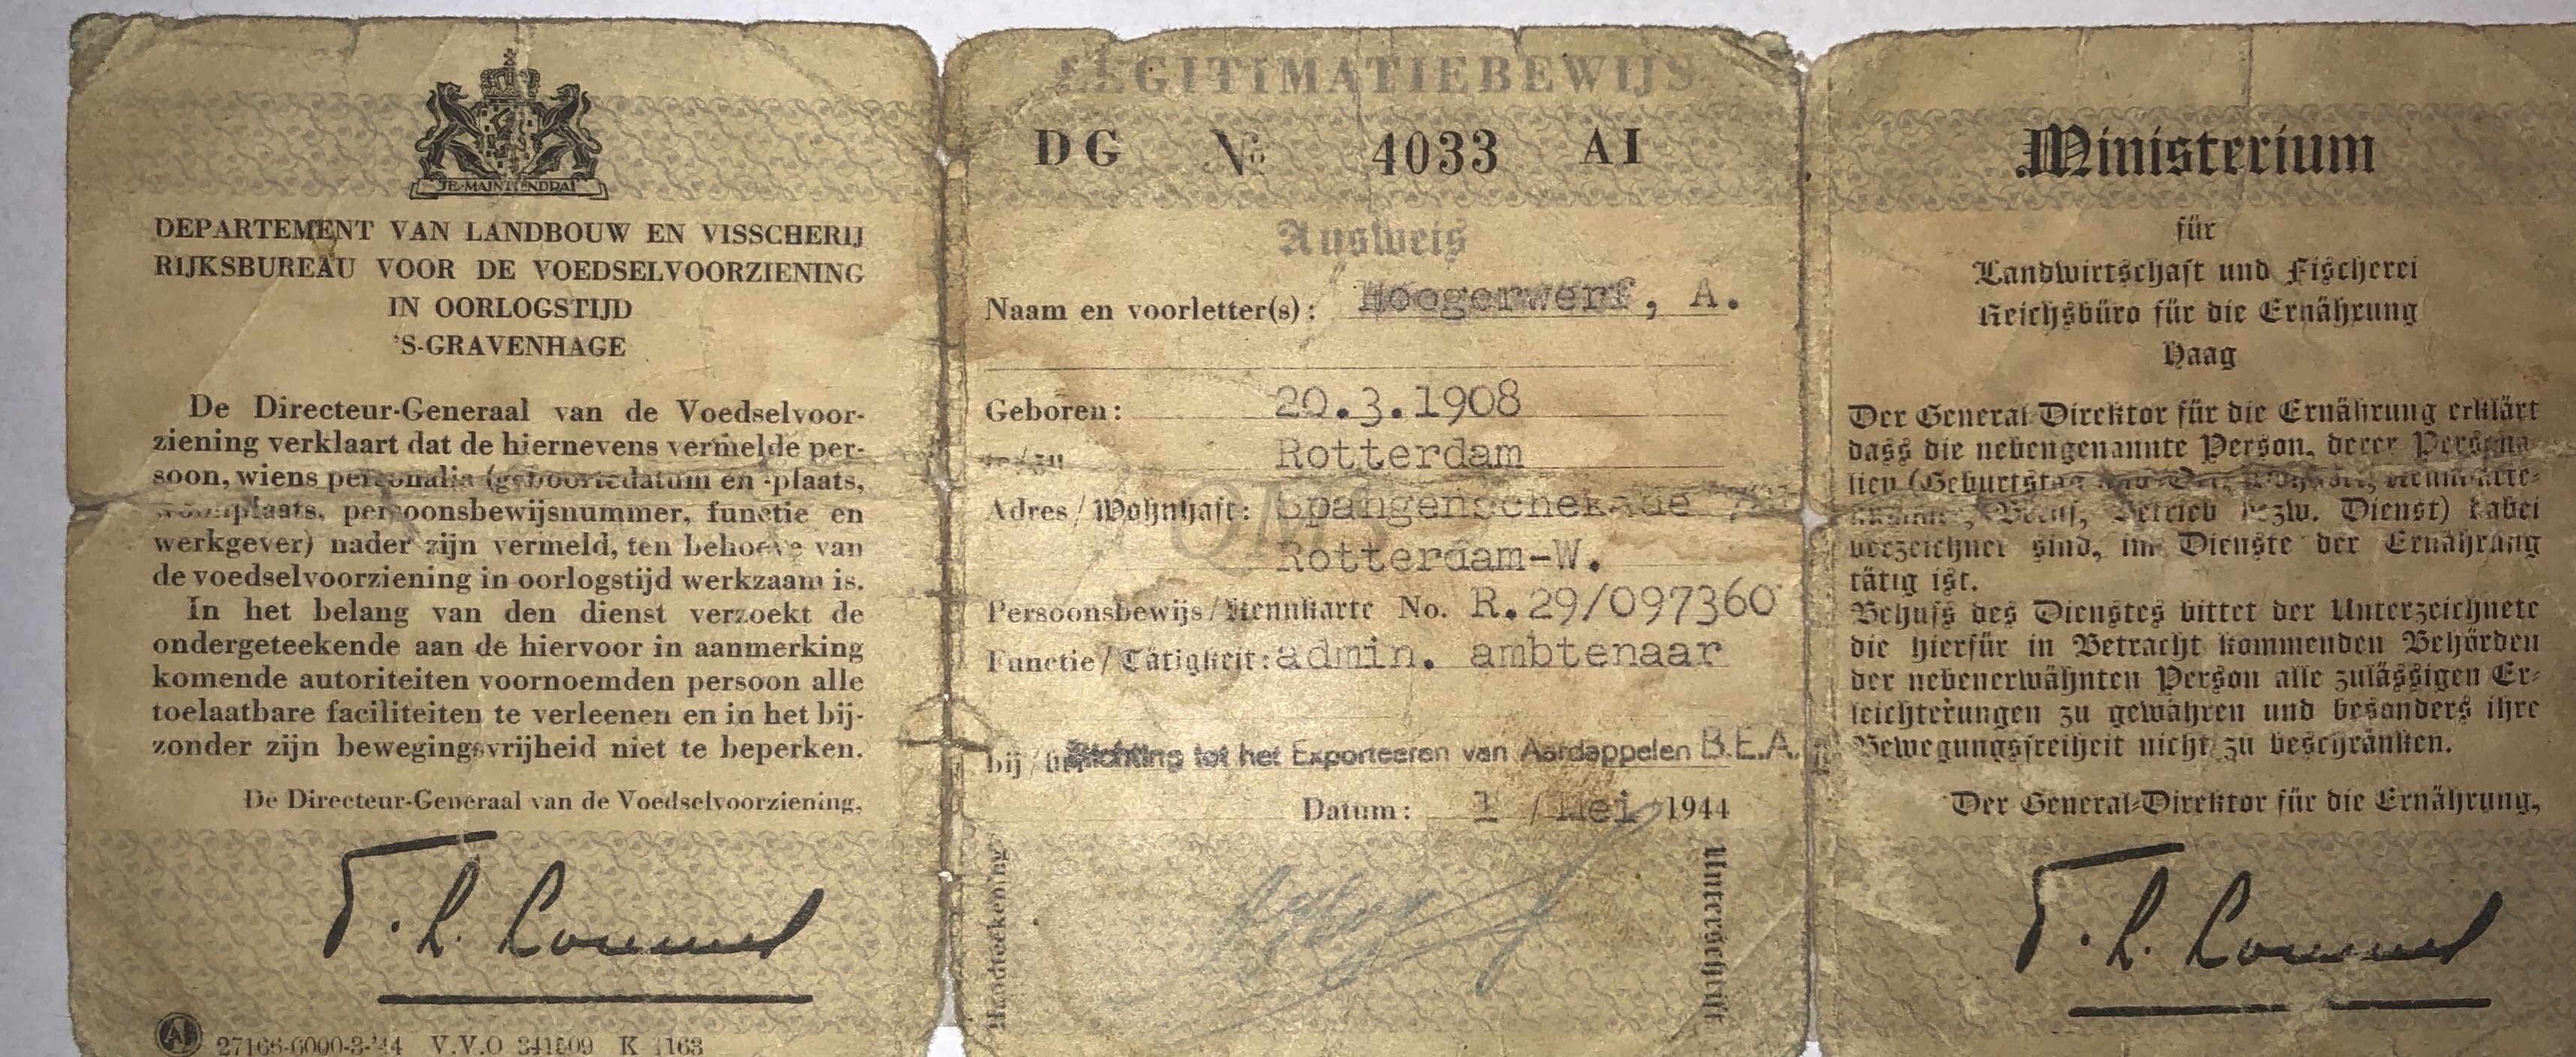 JE MAINTIENDRAI
DEPARTEMENT VAN LANDBOUW EN VISSCHERIJ
RIJKSBUREAU VOOR DE VOEDSELVOORZIENING
IN OORLOGSTIJD
'S-GRAVENHAGE
De Directeur-Generaal van de Voedselvoor-
ziening verklaart dat de hiernevens vermelde per-
soon, wiens personalia (geboortedatum en -plaats,
woonplaats, persoonsbewijsnummer, functie en
werkgever) nader zijn vermeld, ten behoeve van
de voedselvoorziening in oorlogstijd werkzaam is.
In het belang van den dienst verzoekt de
ondergeteekende aan de hiervoor in aanmerking
komende autoriteiten voornoemden persoon alle
toelaatbare faciliteiten te verleenen en in het bij-
zonder zijn bewegingsvrijheid niet te beperken.
De Directeur-Generaal van de Voedselvoorziening,
27166-6000-3-'44 V.V.O 341509 K 1163
LEGITIMATIEBEWIJS
DG No 4033 AI
Ausweis
Naam en voorletter(s): Hoogerwerf, A.
Geboren: 20.3.1908
Rotterdam
Adres/Wohnhaft: Spangenschekade
Rotterdam-W.
Persoonsbewijs/Kennkarte No. R.29/097360
Functie/Tätigkeit: admin. ambtenaar
bij/ Stichting tot het Exporteeren van Aardappelen B.E.A.
Datum: 1 / Mei 1944
Handteekening
Unterschrift
Ministerium
für
Landwirtschaft und Fischerei
Reichsbüro für die Ernährung
Haag
Der General-Direktor für die Ernährung erklärt
dass die nebengenannte Person, derer Persona-
lien (Geburtstag
Beruf, Betrieb bezw. Dienst) dabei
verzeichnet sind, im Dienste der Ernährung
tätig ist.
Behufs des Dienstes bittet der Unterzeichnete
die hierfür in Betracht kommenden Behörden
der nebenerwähnten Person alle zulässigen Er-
leichterungen zu gewähren und besonders ihre
Bewegungsfreiheit nicht zu beschränken.
Der General-Direktor für die Ernährung,